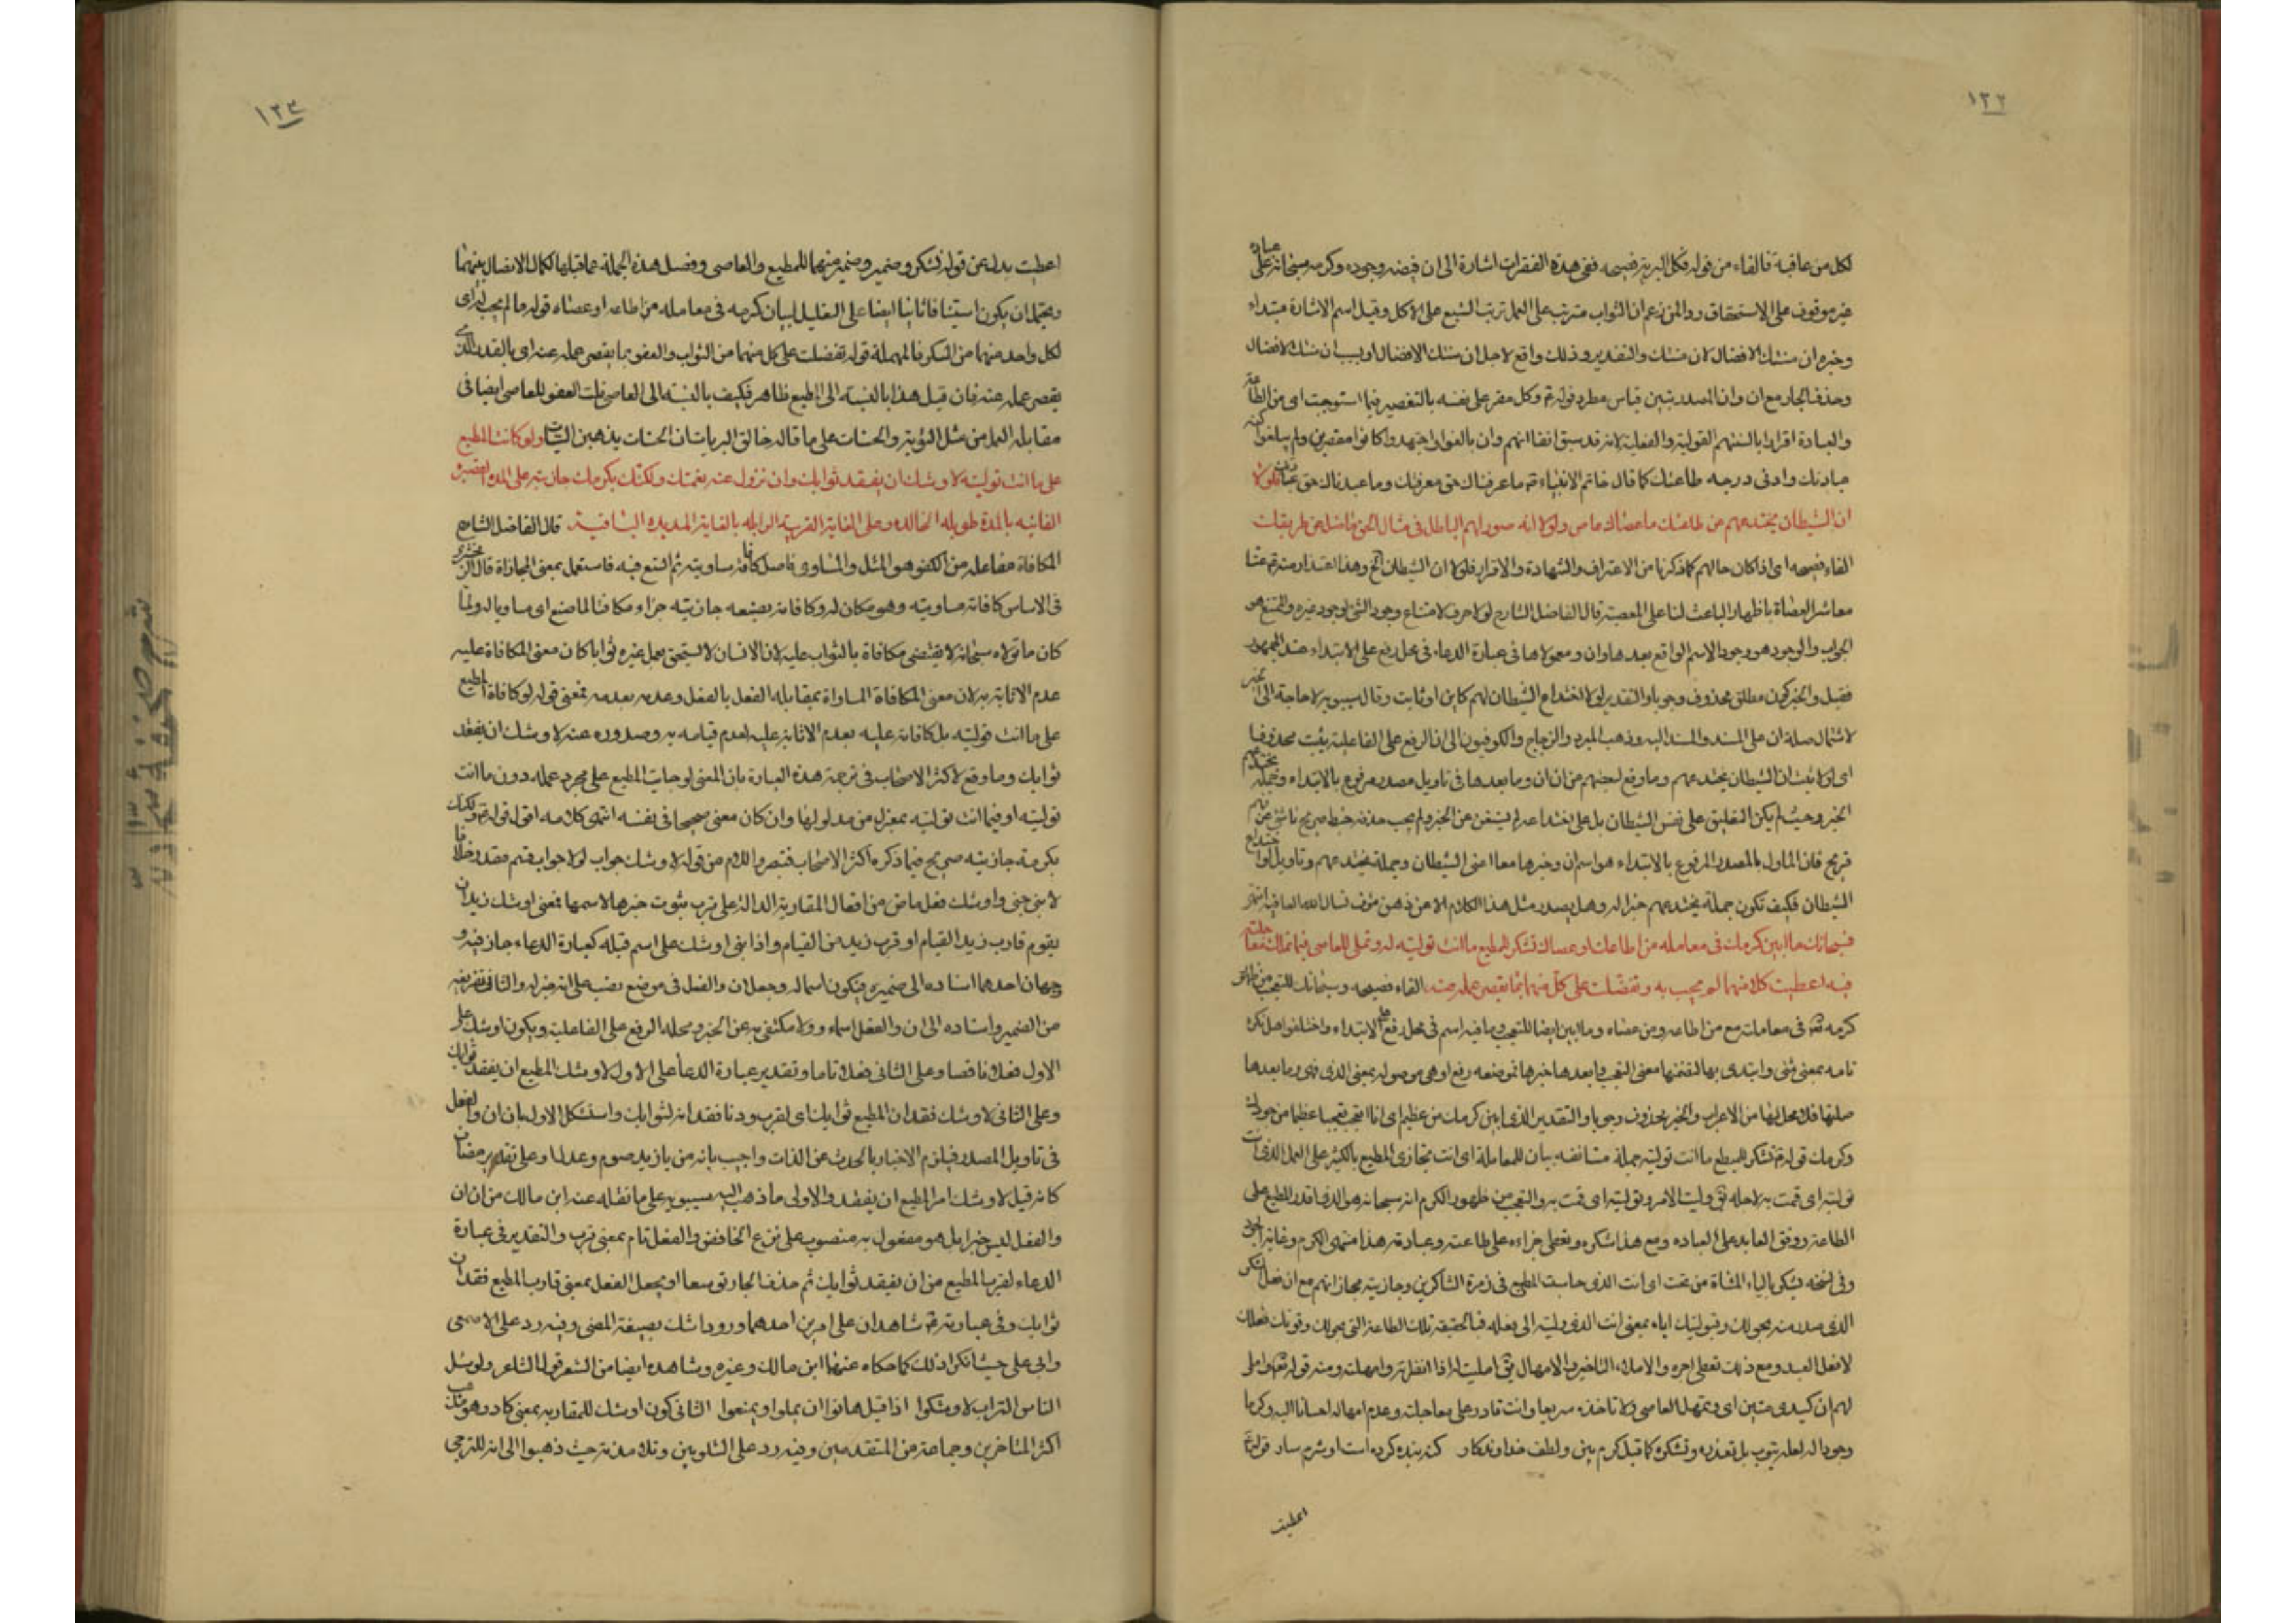 ١٢٢
لكل من عاقبة فالفاء من قوله فكل البرية فصيحه ففي هذة الفقرات اشارة الى ان فيضه وجوده وكرمه سبحانه على عباده
غير موقوف على الاستحقاق ردا لمن زعم ان الثواب مترتب على العمل ترتب الشبع على الاكل وقيل اسم الاشارة مبتداء
وخبره ان سنتك الافضال لان سنتك والتقدير وذلك واقع لاجل ان سنتك الافضال او بسبب ان سنتك الافضال
وحذف الجار مع ان وان المصدريتين قياس مطرد قوله ع وكل مقر على نفسه بالتقصير فيما استوجبت اى من الطاعة
والعبادة اقرارا بالسنتهم القولية والفعلية لانه قد سبق انفا انهم وان بالغوا واجتهدوا كانوا مقصرين ولم يبلغوا كنه
عبادتك وادنى درجه طاعتك كما قال خاتم الانبياء ص ما عرفناك حق معرفتك وما عبدناك حق عبادتك فلولا
ان الشيطان يختدعهم عن طاعتك ما عصاك عاص ولولا انه صور لهم الباطل فى مثال الحق ما ضل عن طريقك
الفاء فصيحه اى اذا كان حالهم كما ذكرنا من الاعتراف والشهادة والاقرار فلولا ان الشيطان الخ وهذا اعتذار منه ع عنا
معاشر العصاة باظهار الباعث لنا على المعصية قال الفاضل الشارح لولا حرف لامتناع وجود الشئ لوجود غيره والممتنع هو
الجواب والوجود هو وجود الاسم الواقع بعدها وان ومعمولاها فى عبارة الدعاء فى محل رفع على الابتداء عند الجمهور
فقيل والخبر كون مطلق محذوف وجوبا والتقدير لولا اختداع الشيطان لهم كاين او ثابت وقال سيبويه لا حاجة الى الخبر
لاشتمال صلة ان على المسند والمسند اليه وذهب المبرد والزجاج والكوفيون الى ان الرفع على الفاعلية بثبت محذوفا
اى لولا ثبت ان الشيطان يختدعهم وما وقع لبعضهم من ان ان وما بعدها فى تاويل مصدر مرفوع بالابتداء وجملة يختدعهم
الخبر وحيث لم يكن التعليق على نفس الشيطان بل على اختداعه لم يستغن عن الخبر ولم يجب حذفه خبط صريح ناش عن
قريح فان الماول بالمصدر المرفوع بالابتداء هو اسم ان وخبرها معا اعنى الشيطان وجملة يختدعهم وتاويله اختداع
الشيطان فكيف تكون جملة يختدعهم خبرا له وهل يصدر مثل هذا الكلام الا عن ذهن مؤف نسال الله العافية انتهى
فسبحانك ما ابين كرمك فى معاملة من اطاعك او عصاك تشكر للمطيع ما انت توليته له وتملى للعاصى فيما تملك معاجلته
فيه اعطيت كلا منهما لم يجب له وتفضلت على كل منهما بما يقصر عمله عنه الفاء فصيحه وسبحانك للتعجب من ظهور
كرمه تع فى معاملته مع من اطاعه ومن عصاه وما ابين ايضا للتعجب وما فيه اسم فى محل رفع على الابتداء واختلفوا هل نكرة
تامه بمعنى شئ وابتدى بها لتضمنها معنى التعجب وما بعدها خبرها فموضعه رفع او هى موصوله بمعنى الذى فهى وما بعدها
صلتها فلا محل لها من الاعراب والخبر محذوف وجوبا والتقدير الذى ابين كرمك من عظيم اى انا اتعجب تعجبا عظيما من جودك
وكرمك قوله ع تشكر للمطيع ما انت توليته جملة مستانفه بيان للمعاملة اى انت تجازى المطيع بالكثير على العمل الذى انت
توليته اى قمت به لاجله يق وليت الامر وتوليته اى قمت به والتعجب من ظهور الكرم انه سبحانه هو الذى اقدر المطيع على
الطاعة ووفق العابد على العباده ومع هذا شكره ويعطى جزاءه على طاعته وعبادته هذا منتهى الكرم وغاية الجود
وفى نسخه يشكر بالياء المثناة من تحت اى انت الذى حاسبت المطيع فى زمرة الشاكرين وجازيته مجازاتهم مع ان فعل الشكر
الذى صدر منه بحولك وقبوليتك اياه بمعنى انت الذى وليته الى فعله فبالحقيقه تلك الطاعة التى بحولك وقوتك فعلك
لا فعل العبد ومع ذلك تعطى اجره والاملاء التاخير والامهال يق امليت له اذا انظرته وامهلته ومنه قوله تعالى واملى
لهم ان كيدى متين اى وتمهل العاصى ولا تاخذه سريعا وانت قادر على معاجلته وعدم امهاله احسانا اليه وكرما
وجودا له لعله يتوب بل تعذره وتشكره كما قيل كرم بين ولطف خداوندكار كنه بنده كرده است او شرم سار قوله ع
اعطيت
١٢٣
اعطيت بدل عن قوله تشكر وضمير وضمير منهما للمطيع والعاصى وفصل هذة الجملة عما قبلها لكمال الاتصال بينهما
ويحتمل ان يكون استينافا ثانيا ايضا على التعليل لبيان كرمه فى معامله من اطاعه او عصاه قوله ما لم يجب له اى
لكل واحد منهما من الشكر فالمهملة قوله تفضلت على كل منهما من الثواب والعفو بما يقصر عمله عنه اى بالقدر الذى
يقصر عمله عنه فان قيل هذا بالنسبة الى المطيع ظاهر فكيف بالنسبه الى العاصى قلت العفو للعاصى ايضا فى
مقابلة العمل من مثل التوبة والحسنات على ما قاله خالق البريات ان الحسنات يذهبن السيئات ولو كافات المطيع
على ما انت توليته لاوشك ان يفقد ثوابك وان تزول عنه نعمتك ولكنك بكرمك جازيته على المدة القصيرة
الفانيه بالمدة طويله الخالده وعلى الغاية القريبة الزايله بالغاية المديده الباقية قال الفاضل الشارح
المكافاة مفاعله من الكفو هو المثل والمساوى فاصل كافاته ساويته ثم اتسع فيه فاستعمل بمعنى المجازاة قال الزمخشرى
فى الاساس كافاته ساويته وهو مكان له وكافاته بصنعه جازيته جزاء مكافئا لما صنع اى مساويا له ولما
كان ما تولاه سبحانه لا يقتضى مكافاة بالثواب عليه لان الانسان لا يستحق بعمل غيره ثوابا كان معنى المكافاة عليه
عدم الاثابة به لان معنى المكافاة المساواة بمقابلة الفعل بالفعل وعدمه بعدمه فمعنى قوله لو كافاة المطيع
على ما انت توليته بل كافاته عليه بعدم الاثابة عليه لعدم قيامه به وصدوره عنه لاوشك ان يفقد
ثوابك وما وقع لاكثر الاصحاب فى ترجمة هذة العبارة بان المعنى لو جازيت المطيع على مجرد عمله دون ما انت
توليته او فيما انت توليته بمعزل من مدلولها وان كان معنى صحيحا فى نفسه انتهى كلامه اقول قوله ع ولكنك
بكرمك جازيته صريح فيما ذكره اكثر الاصحاب فتبصر واللام من قوله لاوشك جواب لو لا جواب قسم مقدر خلافا
لابن جنى واوشك فعل ماض من افعال المقاربة الدالة على قرب ثبوت خبرها لاسمها فمعنى اوشك زيد ان
يقوم قارب زيد القيام او قرب زيد من القيام واذا بنى اوشك على اسم قبله كعبارة الدعاء جاز فيه و
جهان احدهما اسناده الى ضميره فيكون اسما له وجعل ان والفعل فى موضع نصب على انه خبر له والثانى تفريغه
من الضمير واسناده الى ان والفعل اسماء وولا مكتفى به عن الخبر ومحله الرفع على الفاعلية ويكون اوشك على
الاول فعلا ناقصا وعلى الثانى فعلا تاما وتقدير عبارة الدعا على الاول لاوشك المطيع ان يفقد ثوابك
وعلى الثانى لاوشك فقدان المطيع ثوابك اى لقرب ودنا فقدانه لثوابك واستشكل الاول بان ان والفعل
فى تاويل المصدر فيلزم الاخبار بالحدث عن الذات واجيب بانه من باب زيد صوم وعدل او على تقدير مضاف
كانه قيل لاوشك امر المطيع ان يفقد والاولى ما ذهب اليه سيبويه على ما نقله عنه ابن مالك من ان ان
والفعل ليس خبرا بل هو مفعول به منصوب على نزع الخافض والفعل تام بمعنى قرب والتقدير فى عبارة
الدعاء لقرب المطيع من ان يفقد ثوابك ثم حذف الجار توسعا او بجعل الفعل بمعنى قارب المطيع فقدان
ثوابك وفى عبارته ع شاهدان على امرين احدهما ورود اشك بصيغة المضى وفيه رد على الاصمعى
وابى على حيث انكرا ذلك كما حكاه عنهما ابن مالك وغيره وشاهده ايضا من الشعر قول الشاعر ولو سئل
الناس التراب لاوشكوا اذا قيل هاتوا ان يملوا ويمنعوا الثانى كون اوشك للمقاربه بمعنى كاد وهو مذهب
اكثر المتاخرين وجماعة من المتقدمين وفيه رد على الشلوبين وتلامذته حيث ذهبوا الى انه للترجى